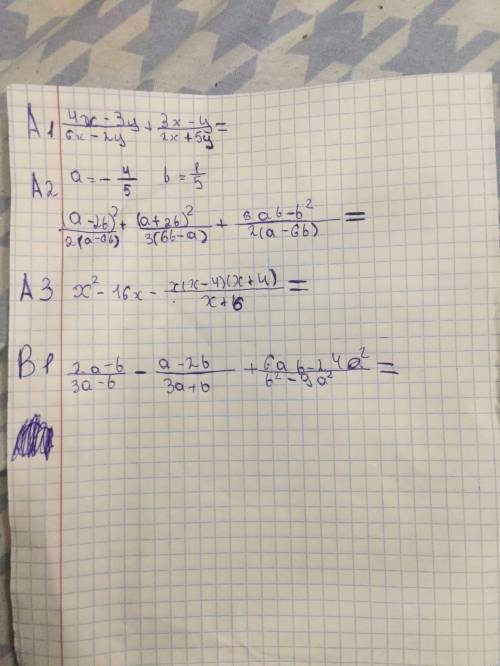 A1 (4x - 3y)/(6x - 2y) + (3x - y)/(2x + 5y) =
A2 a = - 4/5 b = 1/5
(a - 2b)²/2(a - 6b) + (a + 2b)²/3(6b - a) + (8ab - b²)/2(a - 6b) =
A3 x² - 16x - x(x - 4)(x + 4)/(x + 6) =
B1 (2a - b)/(3a - b) - (a - 2b)/(3a + b) + (6ab - 2 4a²)/(b² - 9a²) =